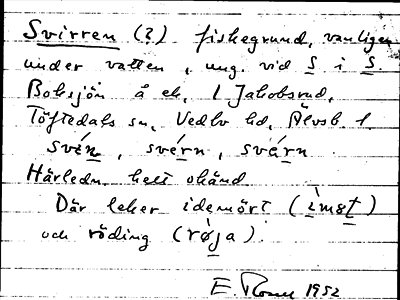 Svirren (?) fiskegrund, vanligen
under vatten, ung. vid S i S.
Boksjön å ek. 1 Jakobsrud,
Töftedals sn, Vedbo hd, Älvsb. l.
svén, svérn, svárn
Härledn. helt okänd
Där leker idemört (ìmət)
och röding (røja).
E. 1952